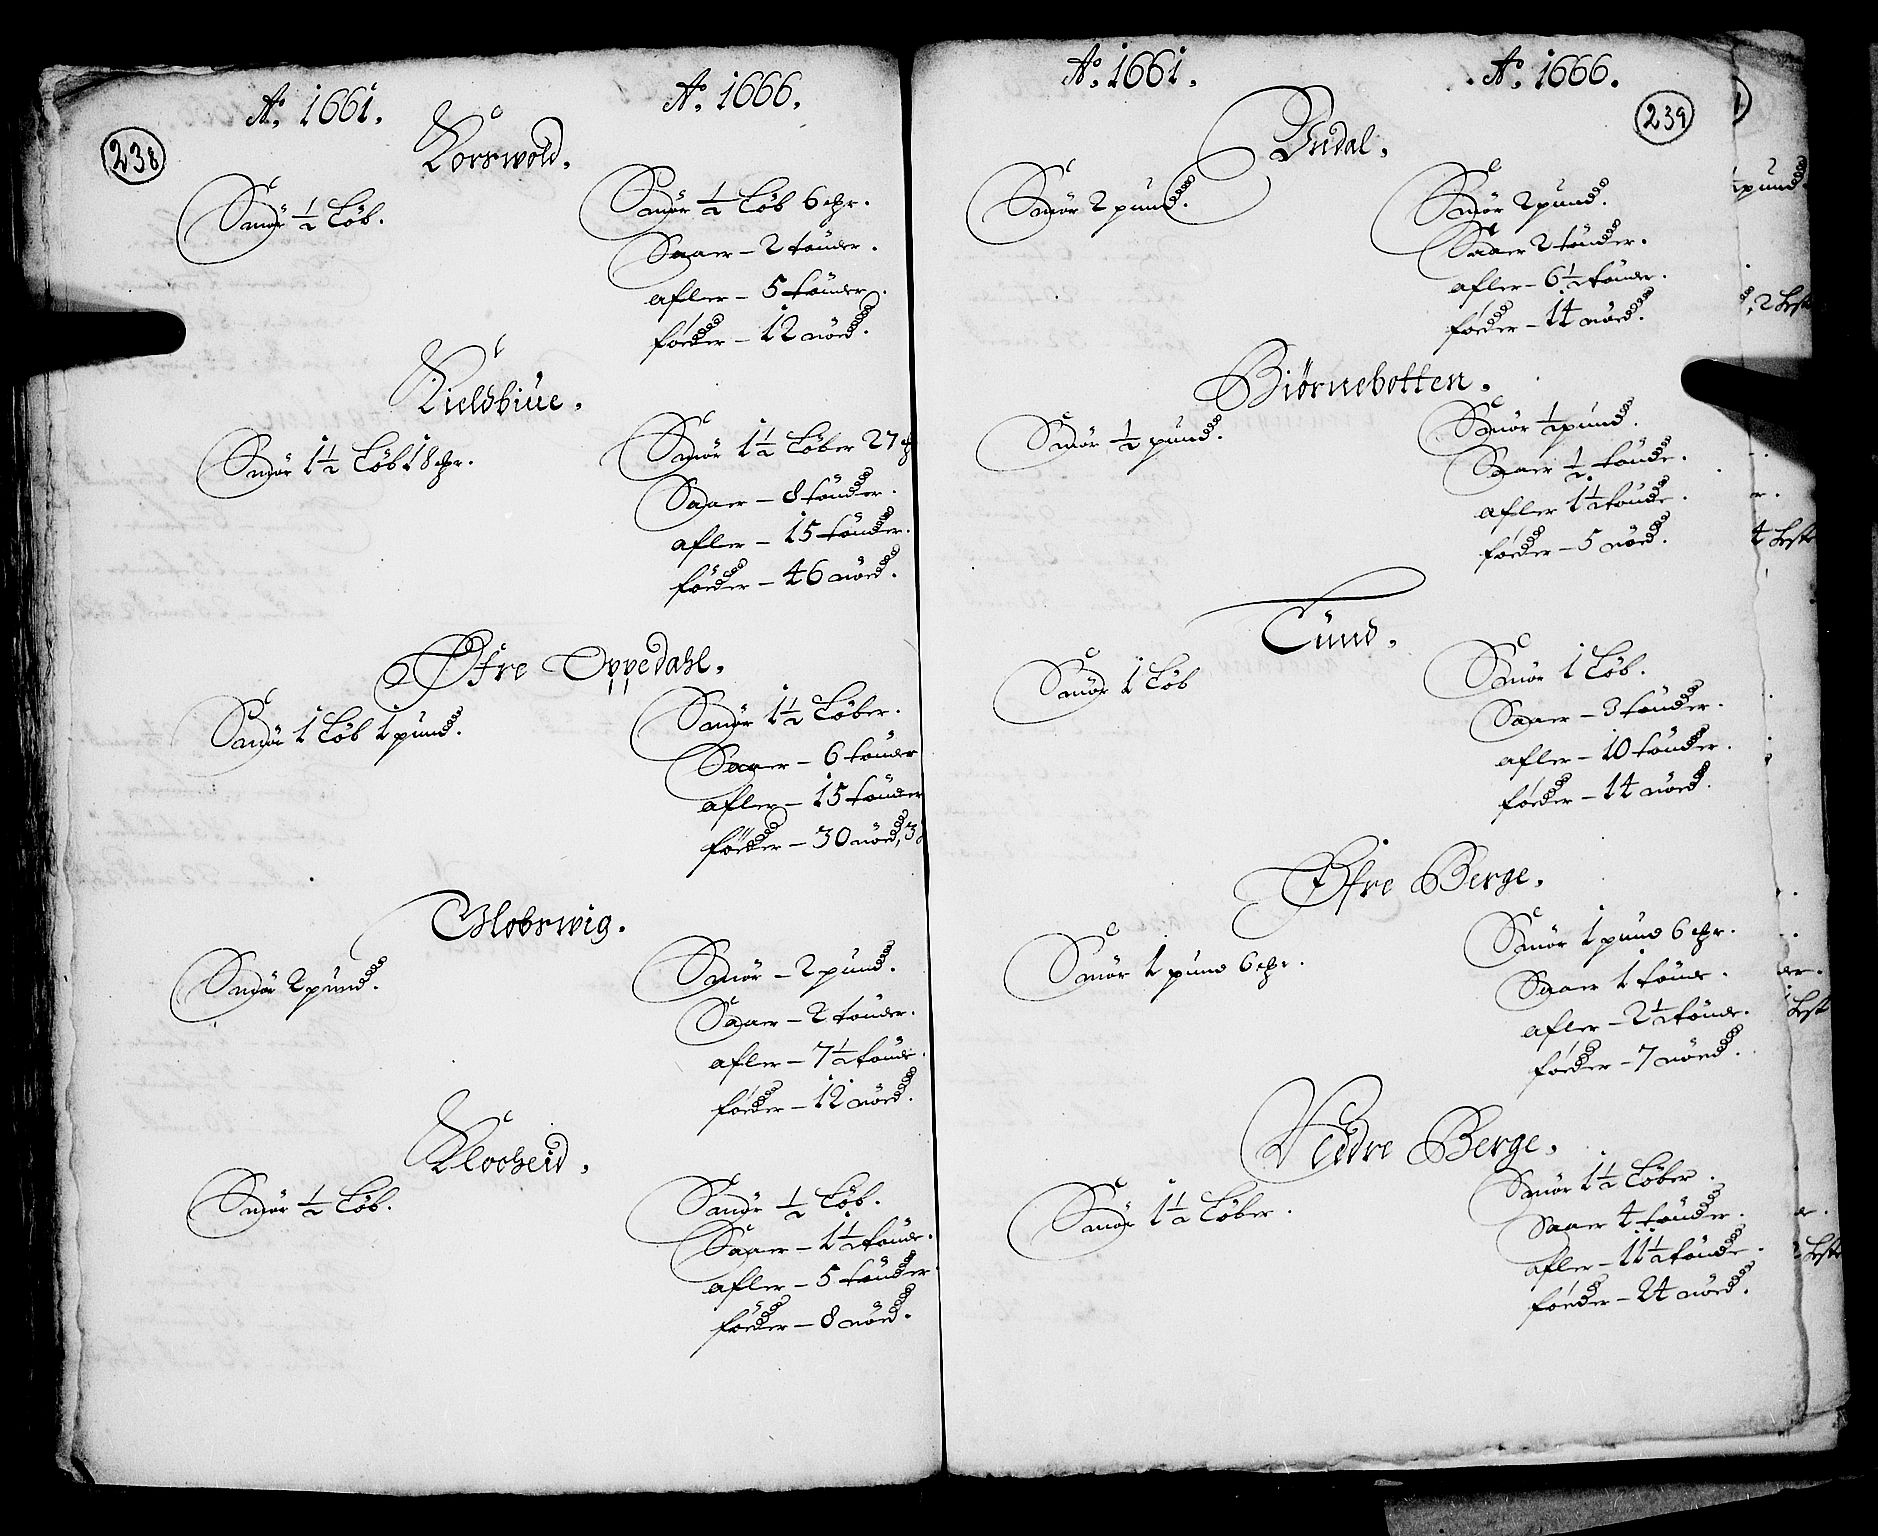 238
Aº. 1661. Aº. 1666.
Korswold.
Smör ½ Løb. Smör ½ Løb 6 mr.
Saaer – 2 tönder.
afler – 5 tönder.
föeder – 12 nöed.
Kieldbiüe.
Smör 1½ Løb 18 mr. Smör 1½ Løber 27
Saaer – 8 tönder.
afler – 15 tönder.
föeder – 46 nöed.
Øfre Oppedahl.
Smör 1 Løb 1 pünd. Smör 1½ Løber.
Saaer – 6 tönder
afler – 15 tönder
föeder – 30 nöed,
Globswig.
Smör 2 pünd. Smör – 2 pünd.
Saaer – 2 tönder.
afler – 7½ tönde.
föeder – 12 nöed.
Klocheid.
Smör ½ Løb. Smör ½ Løb.
Saaer – 1½ tönde.
afler – 5 tönder.
föeder – 8 nöed.
239
Aº. 1661. Aº. 1666.
Yndal.
Smör 2 pünd. Smör 2 pünd.
Saaer 2 tönder.
afler – 6½ tönde.
föeder – 14 nöed.
Biörnebotten.
Smör ½ pünd. Smör ½ pünd.
Saaer ½ tönde.
afler 1½ tönde.
föeder – 5 nöed.
Tünd.
Smör 1 Løb Smör 1 Løb.
Saaer – 3 tönder.
afler – 10 tönder.
föeder – 14 nöed.
Øfre Berge.
Smör 1 pünd 6 mr. Smör 1 pünd 6 mr.
Saaer 1 tönde.
afler – 2½ tönde.
föeder – 7 nöed.
Neddre Berge.
Smör 1½ Løber. Smör 1½ Løber.
Saaer 4 tönder.
afler – 11½ tönde.
föeder – 24 nöed.